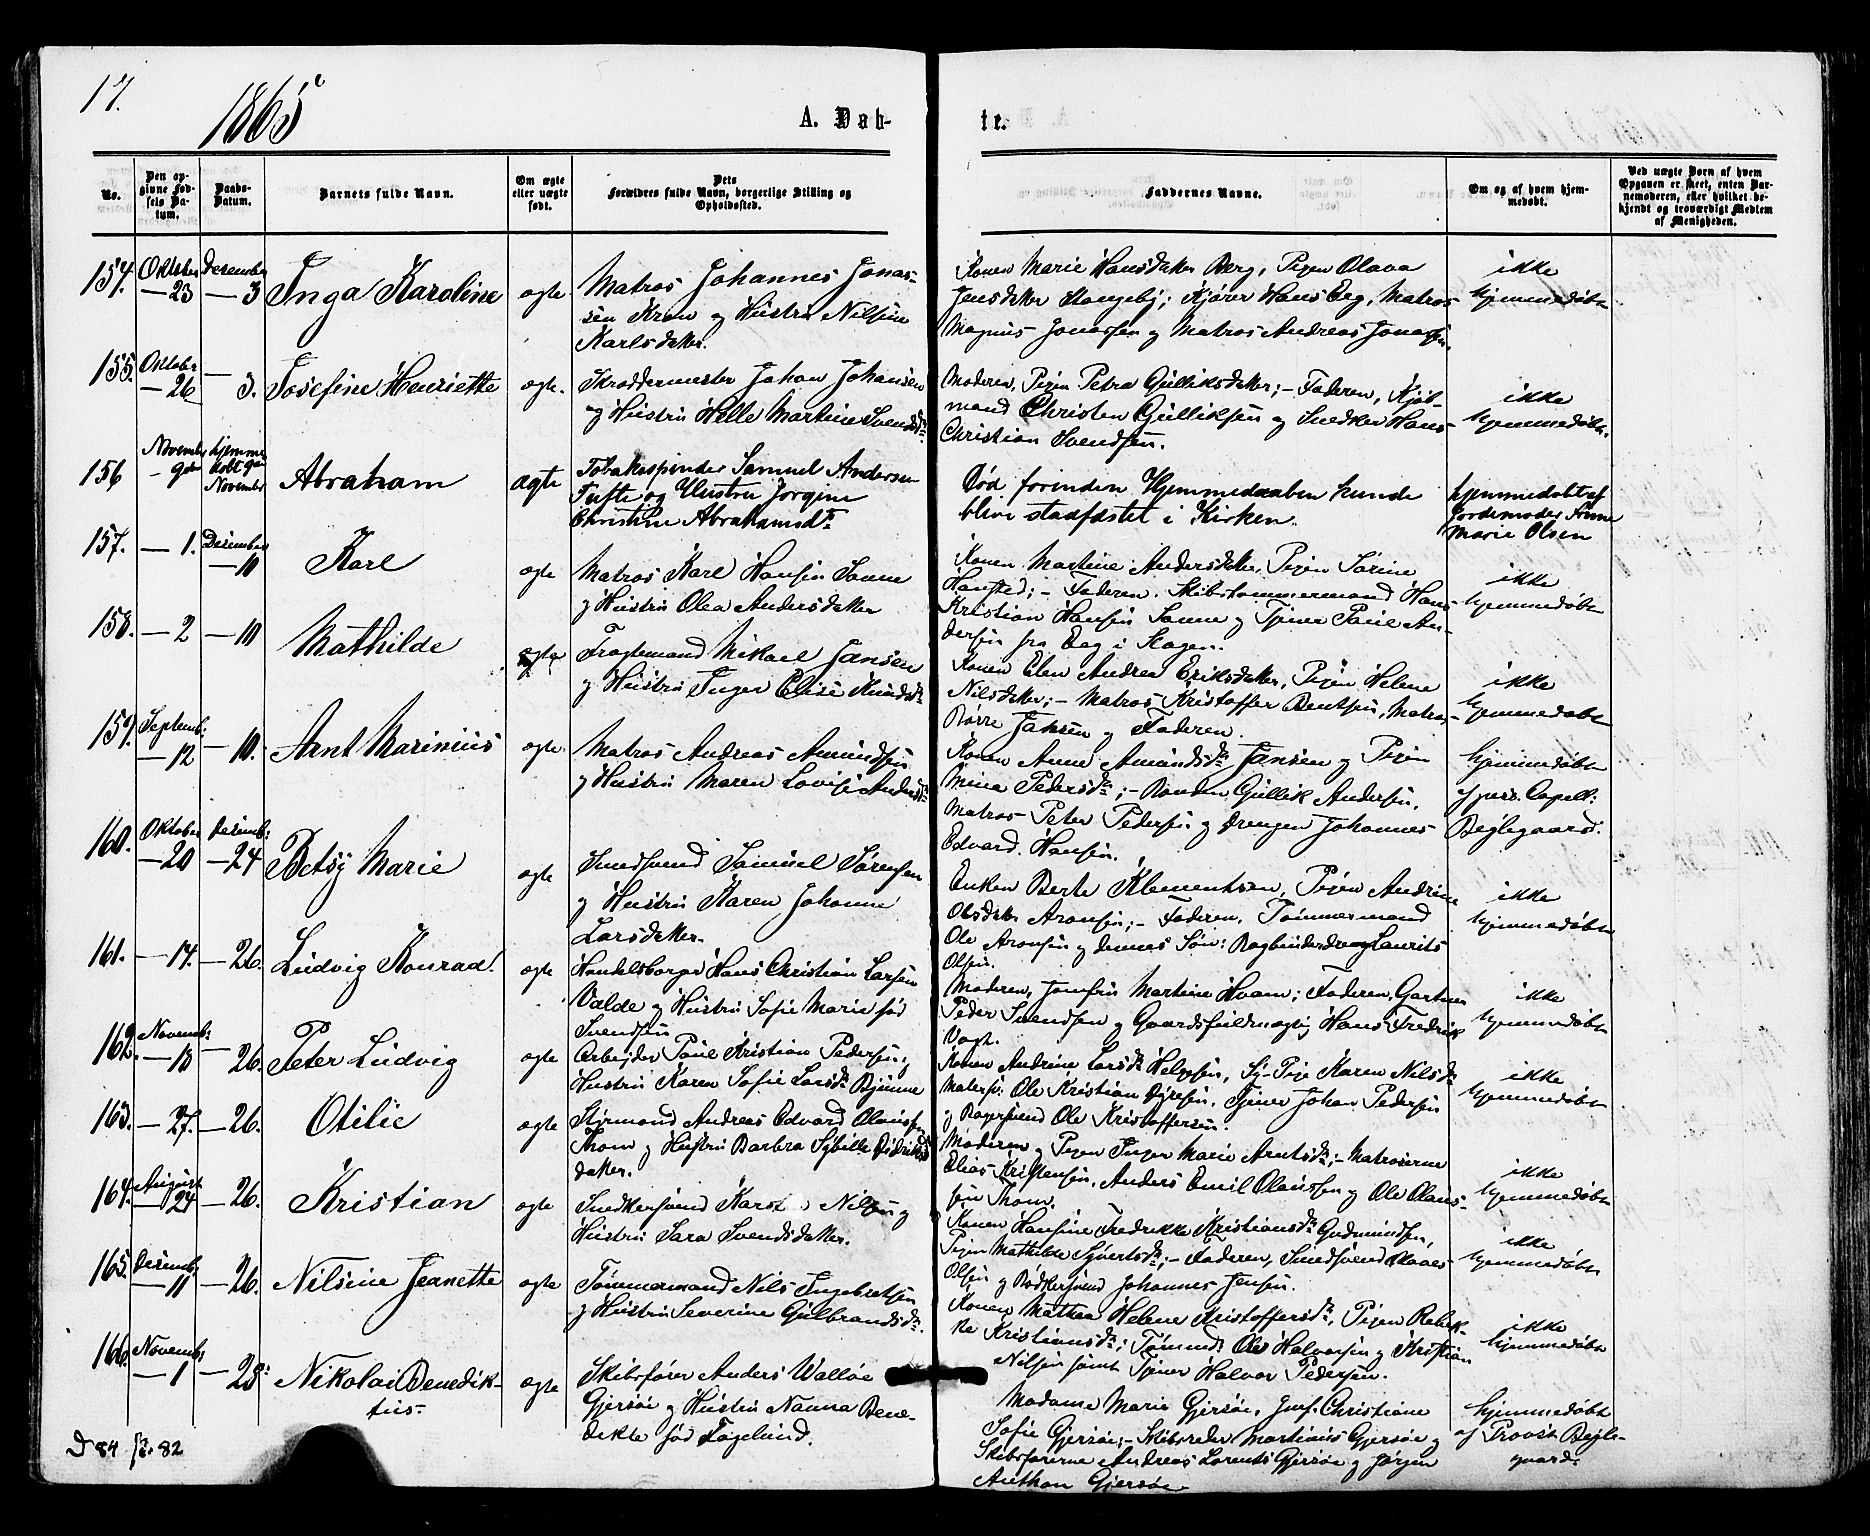 17.
1865
A. Døb-
te.
No.
Den op-
givne Fød-
sels Da-
tum.
Daabs-
Datum.
Barnets fulde Navn.
Om ægte
eller uægte
født.
Dets
Forældres fulde Navn, borgerlige Stilling og
Opholdssted.
Faddernes Navne.
Om og af hvem hjem-
medøbt.
Ved uægte Børn af hvem
Opgaven er skeet, enten Bar-
nemoderen, eller hvilket be-
kjendt og troværdigt Medlem
af Menigheden.
154. Oktober Desember
— 23 — 3 Inga Karoline ægte
Matros Johannes Jonas-
sen Kron og Hustru Nilsine
Karlsdatter.
Konen Marie Hansdatter Berg, Pigen Olava
Jensdatter Stangeby; Kjører Hans Beg, Matros
Magnus Jonassen og Matros Andreas Jonassen.
ikke
hjemmedøbt
155. Oktober —
— 26 3. Josefine Henriette ægte.
Skræddermester Johan Johansen
og Hustru Helle Martine Svendsd.
Moderen, Pigen Petra Gulliksdatter; – Faderen, Kjøb-
mand Christen Gulliksen og Snedker Hans
Christian Svendsen.
ikke
hjemmedøbt.
156 November hjemme
– 9de døbt 9de
November
Abraham ægte
Tobaksspinder Samuel Andersen
Tufte og Hustru Jørgine
Christine Abrahamsdr
Død forinden Hjemmedaaben kunde
blive stadfæstet i Kirken.
hjemmedøbt af
Jordemoder Anne
Marie Olsen
157. — 1. Desember
— 10 Karl ægte
Matros Karl Hansen Sanne
og Hustru Olea Andersdatter
Konen Martine Andersdatter, Pigen Sørine
Hansted; – Faderen, Skibstømmermand Hans
Kristian Hansen Sanne og Tjener Paul An-
dersen fra Eeg i Skogen.
ikke
hjemmedøbt
158. — 2 — 10 Mathilde ægte
Fragtemand Mikael Jansen
og Hustru Inger Elise Knudsdr
Konen Elen Andrea Eriksdatter, Pigen Helene
Nilsdatter; – Matros Kristoffer Bentsen, Matros
Børre Jansen og Faderen.
ikke
hjemmedøbt
159. Septemb:
— 12 — 10. Arnt Marinius ægte
Matros Andreas Amundsen
og Hustru Maren Lovise Andersdr
Konen Anne Amundsdr Jansen og Pigen
Mina Pedersdr; – Bonden Gullik Andersen,
Matros Peter Pedersen og Drengen Johannes
Edvard Hansen.
hjemmedøbt
af pers. Capell:
Bejlegaard.
160. Oktober Desemb:
— 20 — 24 Betsy Marie ægte
Smedsvend Samuel Sørensen
og Hustru Karen Johanne
Larsdatter.
Enken Berte Klementsen, Pigen Andrine
Olsdatter Aronsen; – Faderen, Tømmermand
Ole Aronsen og dennes Søn: Bogbinderdreng Laurits
Olsen.
ikke
hjemmedøbt
161. — 14. — 26. Ludvig Konrad. ægte
Handelsborger Hans Christian Larsen
Valde og Hustru Sofie Marie fød
Svendsen
Moderen, Jomfru Martine Hvam; Faderen, Gartner
Peder Svendsen og Gaardsfuldmægtig Hans Fredrik
Vogt.
ikke
hjemmedøbt
162 Novemb: —
— 18 26. Peter Ludvig ægte
Arbejder Paul Kristian Pedersen,
Hustru Karen Sofie Larsdr Bjønne
Konen Andrine Larsdr Helgesen, Sy-Pige Karen Nilsdr
Matersø: Ole Kristian Dyresen, Tjener Johan Pedersen
og Bagersvend Ole Kristoffersen.
ikke
hjemmedøbt
163. — 27. — 26. Otilie ægte
Styrmand Andreas Edvard Olaussen
Thom og Hustru Barbra Sybille Didriks-
datter.
Moderen og Pigen Inger Marie Arntsdr; – Matroserne
Elias Kristensen, Anders Emil Olaussen og Ole Olaus-
sen Thom.
ikke
hjemmedøbt
164. August
— 24 — 26. Kristian ægte
Snedkersvend Karst Nilsen og
Hustru Sara Svendsdatter.
Konen Hansine Fredrikke Kristiansdr Gudmundsen,
Pigen Mathilde Syvertsdr; – Faderen, Smedsvend Klaves
Olsen og Bødkersvend Johannes Jensen.
ikke
hjemmedøbt
165. Desemb:
— 11 — 26. Nilsine Jeanette ægte
Tømmermand Nils Ingebretsen
og Hustru Severine Gulbrandsdr.
Konen Mathea Helene Kristoffersdr, Pigen Rebek-
ke Kristiansdr; Tømmd: Ole Halvorsen og Kristian
Nilsen samt Tjener Halvor Pedersen.
ikke
hjemmedøbt
166. Novemb:
— 1 — 28: Nikolai Benedik-
tus. ægte
Skibsfører Anders Walløe
Gjersøe og Hustru Nanna Bene-
dikte fød Fogelund.
Madame Marie Gjersøe, Jomf. Christiane
Sofie Gjersøe; – Skibsreder Martinus Gjersøe og
Skibsførerne Andreas Lorents Gjersøe og Jørgen
Anthon Gjersøe
hjemmedøbt
af Provst Bejle-
gaard.
D 84 P. 82